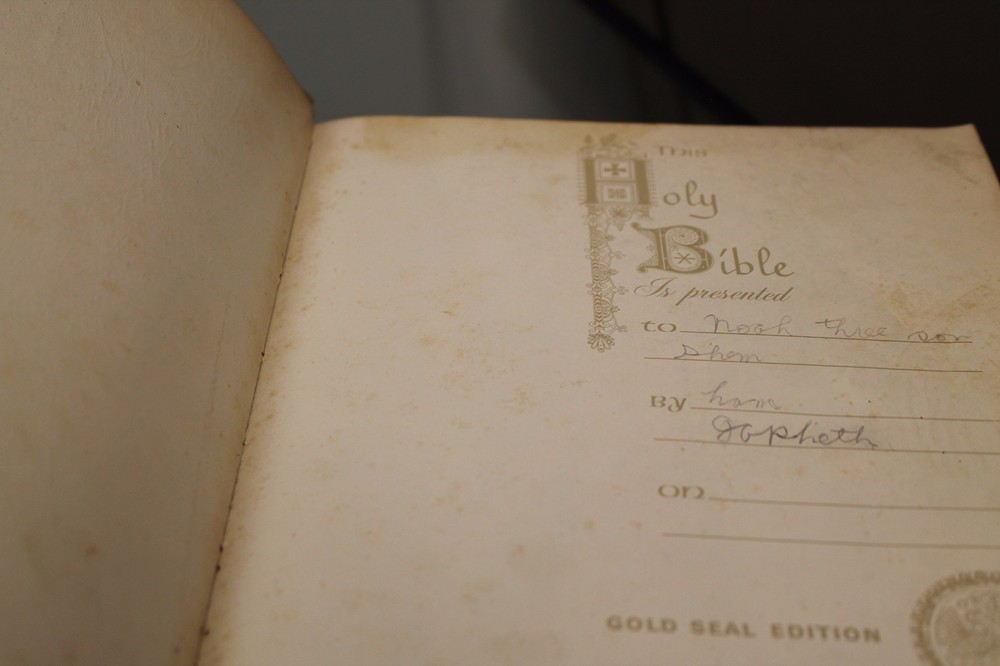 THIS
Holy
Bible
Is presented
to Noah three son
Shem
By ham
Japheth
on
GOLD SEAL EDITION